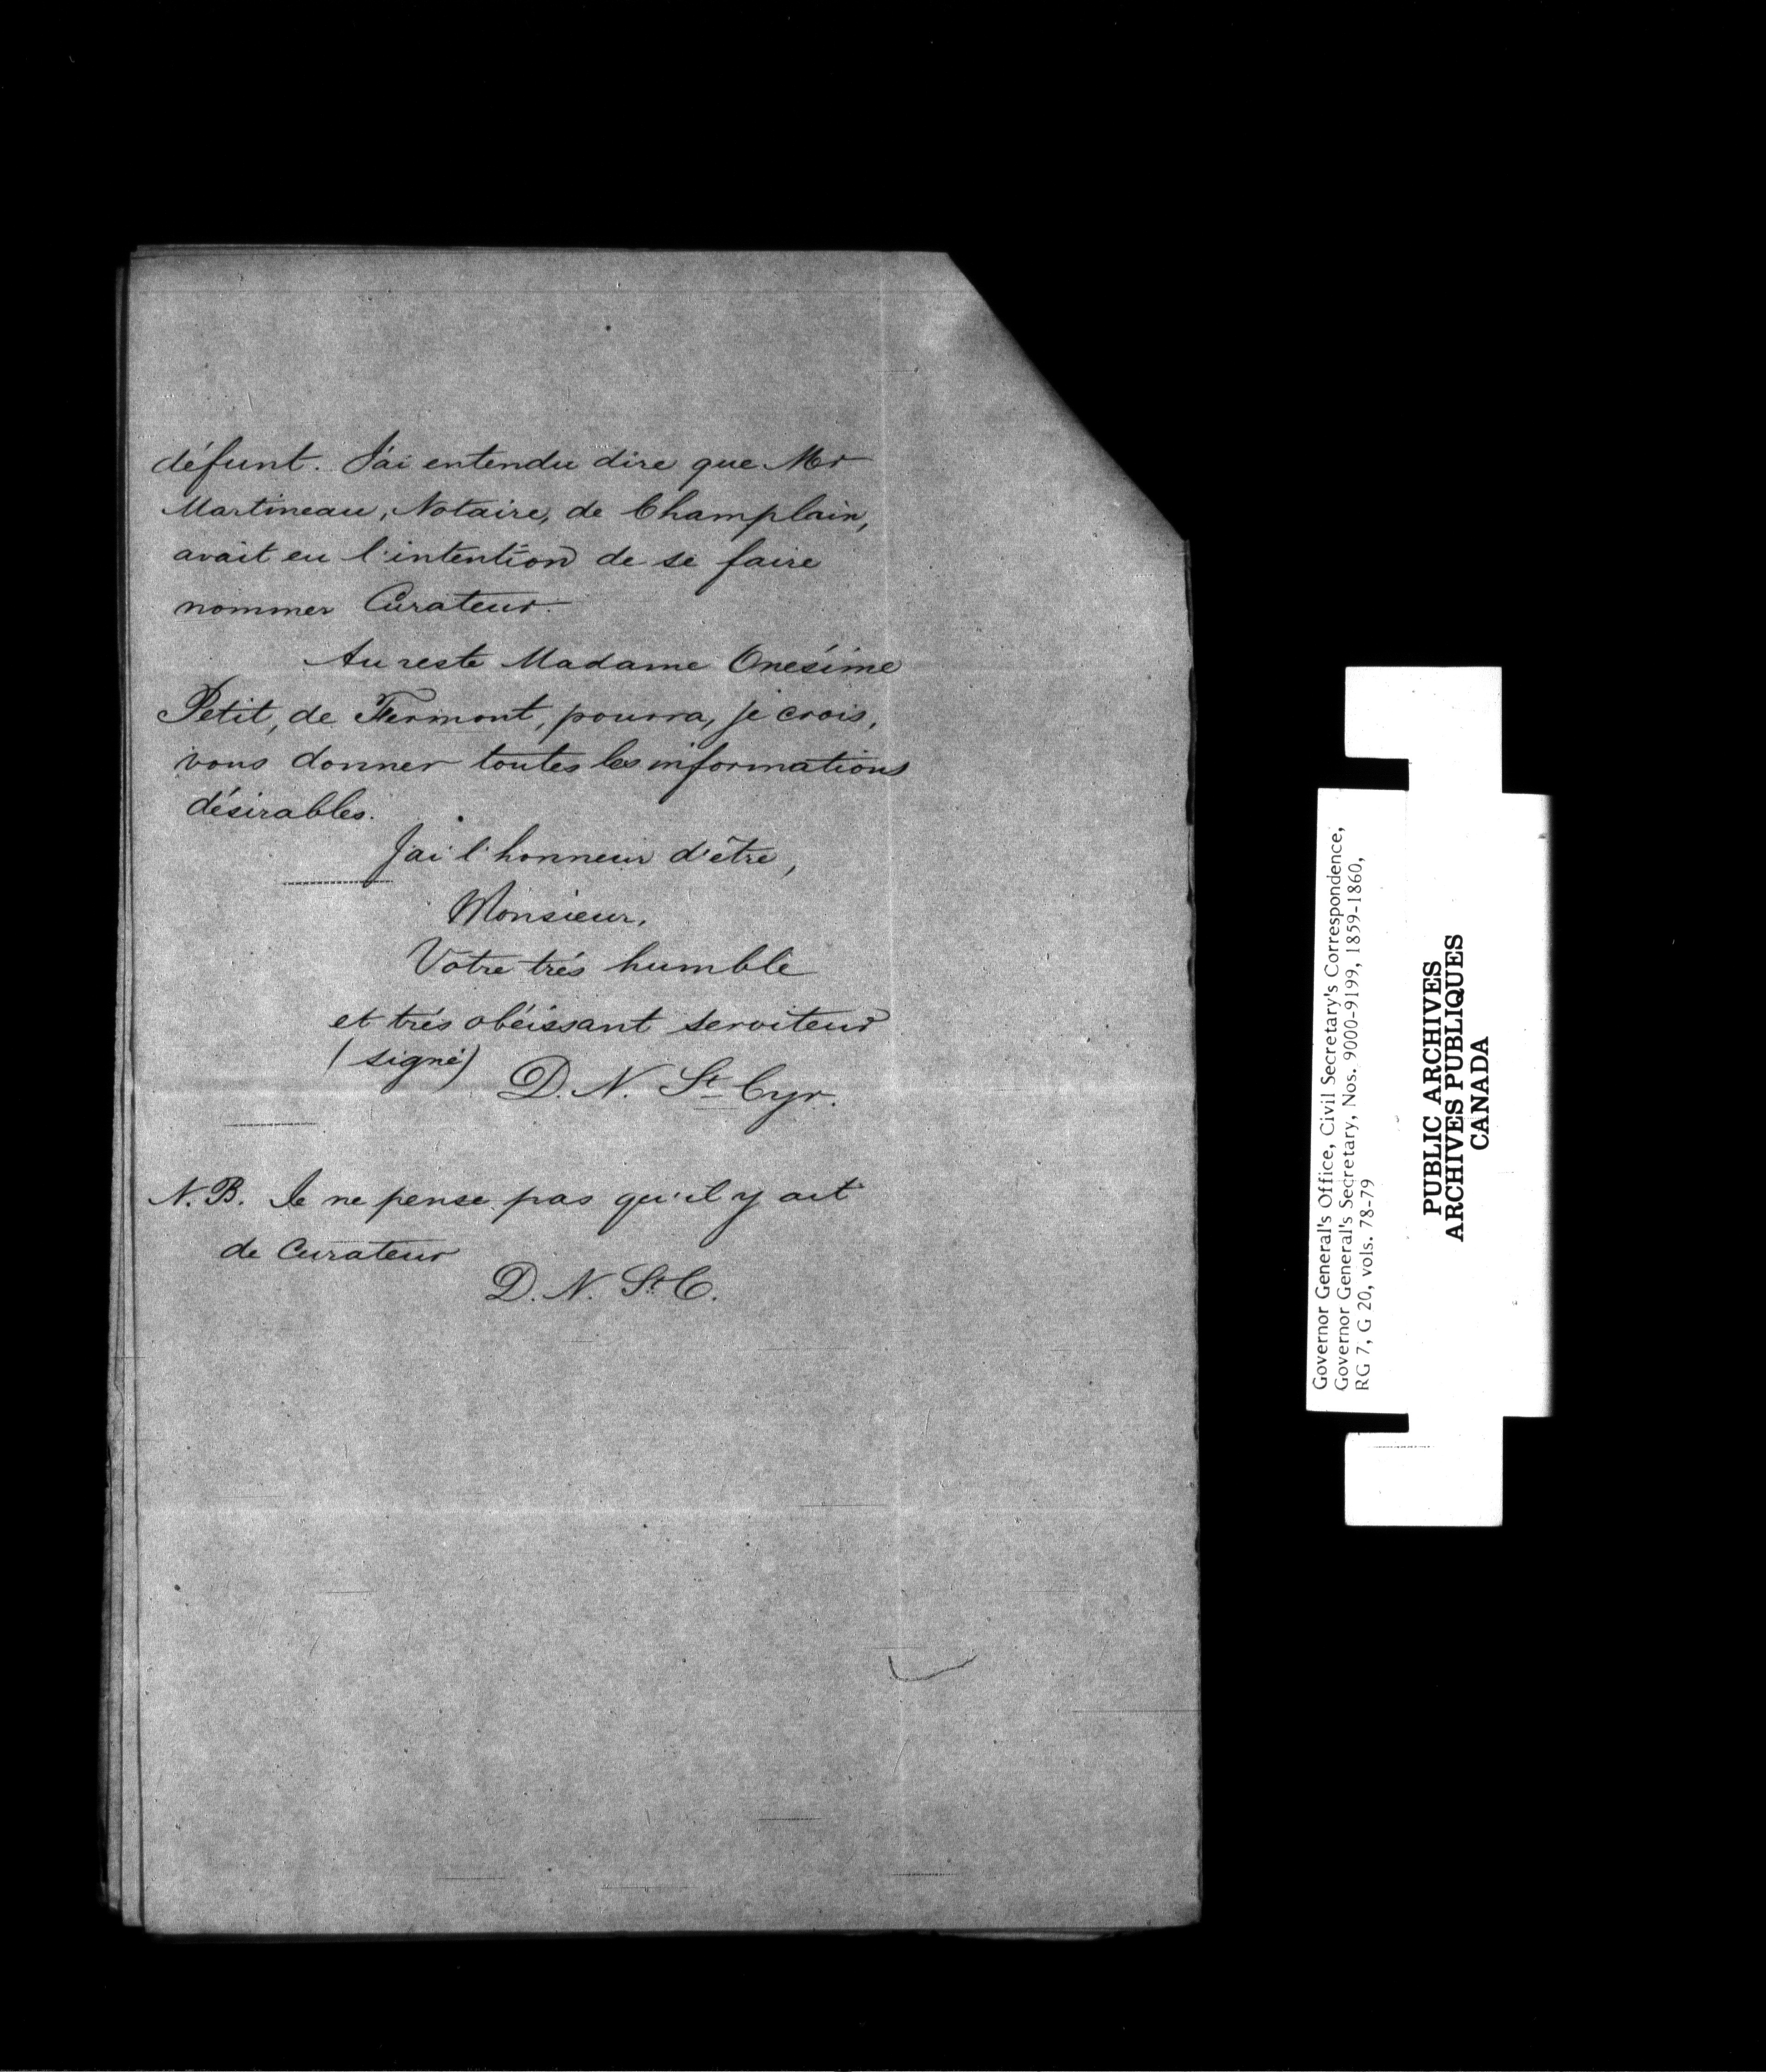 défunt. J'ai entendu dire que Mr
Martineau, Notaire, de Champlain,
avait eu l'intention de se faire
nommer Curateur.
Au reste Madame Onésime
Petit, de Fermont, pourra, je crois,
vous donner toutes les informations
désirables.
J'ai l'honneur d'être,
Monsieur,
Votre très humble
et très obéissant serviteur
(signé)
D. N. St Cyr.
N.B. Je ne pense pas qu'il y ait
de Curateur
D. N. St C.
Governor General's Office, Civil Secretary's Correspondence,
Governor General's Secretary, Nos. 9000-9199, 1859-1860,
RG 7, G 20, vols. 78-79
PUBLIC ARCHIVES
ARCHIVES PUBLIQUES
CANADA